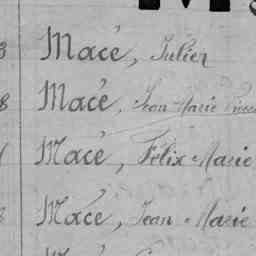 Macé, Julien
Macé, Jean Marie
Macé, Félix Marie
Macé, Jean Marie